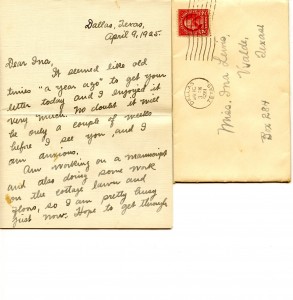 Dallas, Texas,
April 9, 1925.
Dear Ina,
It seemed like old
times "a year ago" to get your
letter today and I enjoyed it
very much. No doubt it will
be only a couple of weeks
before I see you and I
am anxious.
Am working on a manuscript
and also doing some work
on the cottage lawn and
floors, so I am pretty busy
just now. Hope to get through
Miss. Ina Lewis,
Uvalde,
Texas
Box 284